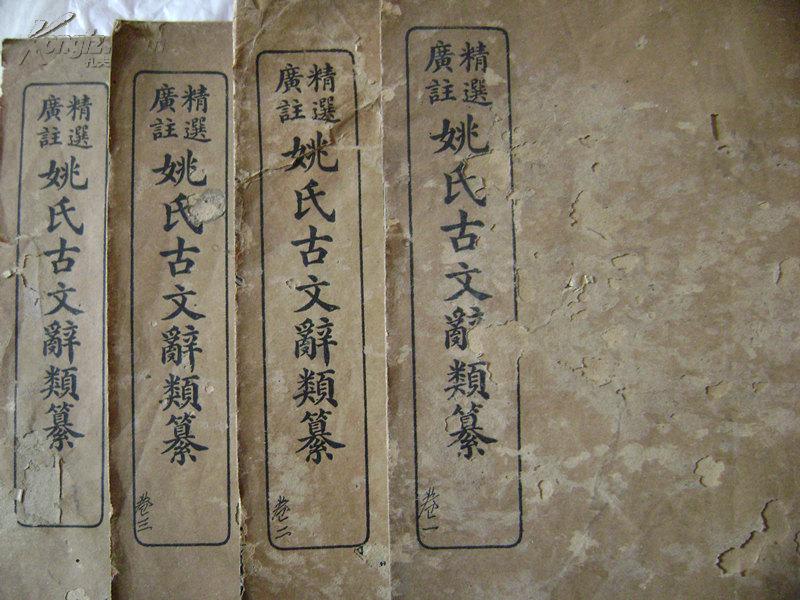 精選
廣註
姚氏古文辭類纂
卷一
精選
廣註
姚氏古文辭類纂
卷二
精選
廣註
姚氏古文辭類纂
卷三
精選
廣註
姚氏古文辭類纂